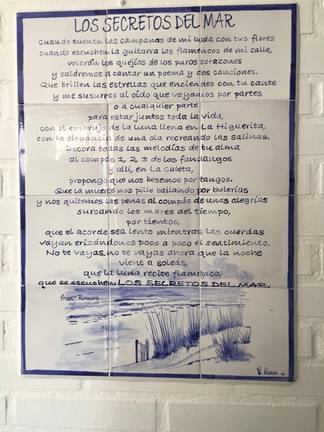 LOS SECRETOS DEL MAR
Cuando suenen las campanas de mi boda con tus flores
cuando escuchen la guitarra los flamencos de mi calle,
volarán los quejíos de los puros corazones
y saldremos a cantar un poema y dos canciones.
Que brillen las estrellas que enciendes con tu cante
y me susurres al oído que vayamos por partes
o a cualquier parte
para estar juntos toda la vida,
con el embrujo de la luna llena en La Higuerita,
con la elegancia de una ola recreando las salinas.
Decora todas las melodías de tu alma
al compás 1, 2, 3 de los fandangos
y allí, en La Caleta,
propongo que nos besemos por tangos.
Que la muerte nos pille bailando por bulerías
y nos quitemos las penas al compás de unas alegrías
surcando los mares del tiempo,
por tientos,
que el acorde sea lento mientras las cuerdas
vayan erizándonos poco a poco el sentimiento.
No te vayas, no te vayas ahora que la noche
viene a soleás,
que la luna recite flamenco,
que se escuchen LOS SECRETOS DEL MAR.
Fran Romero